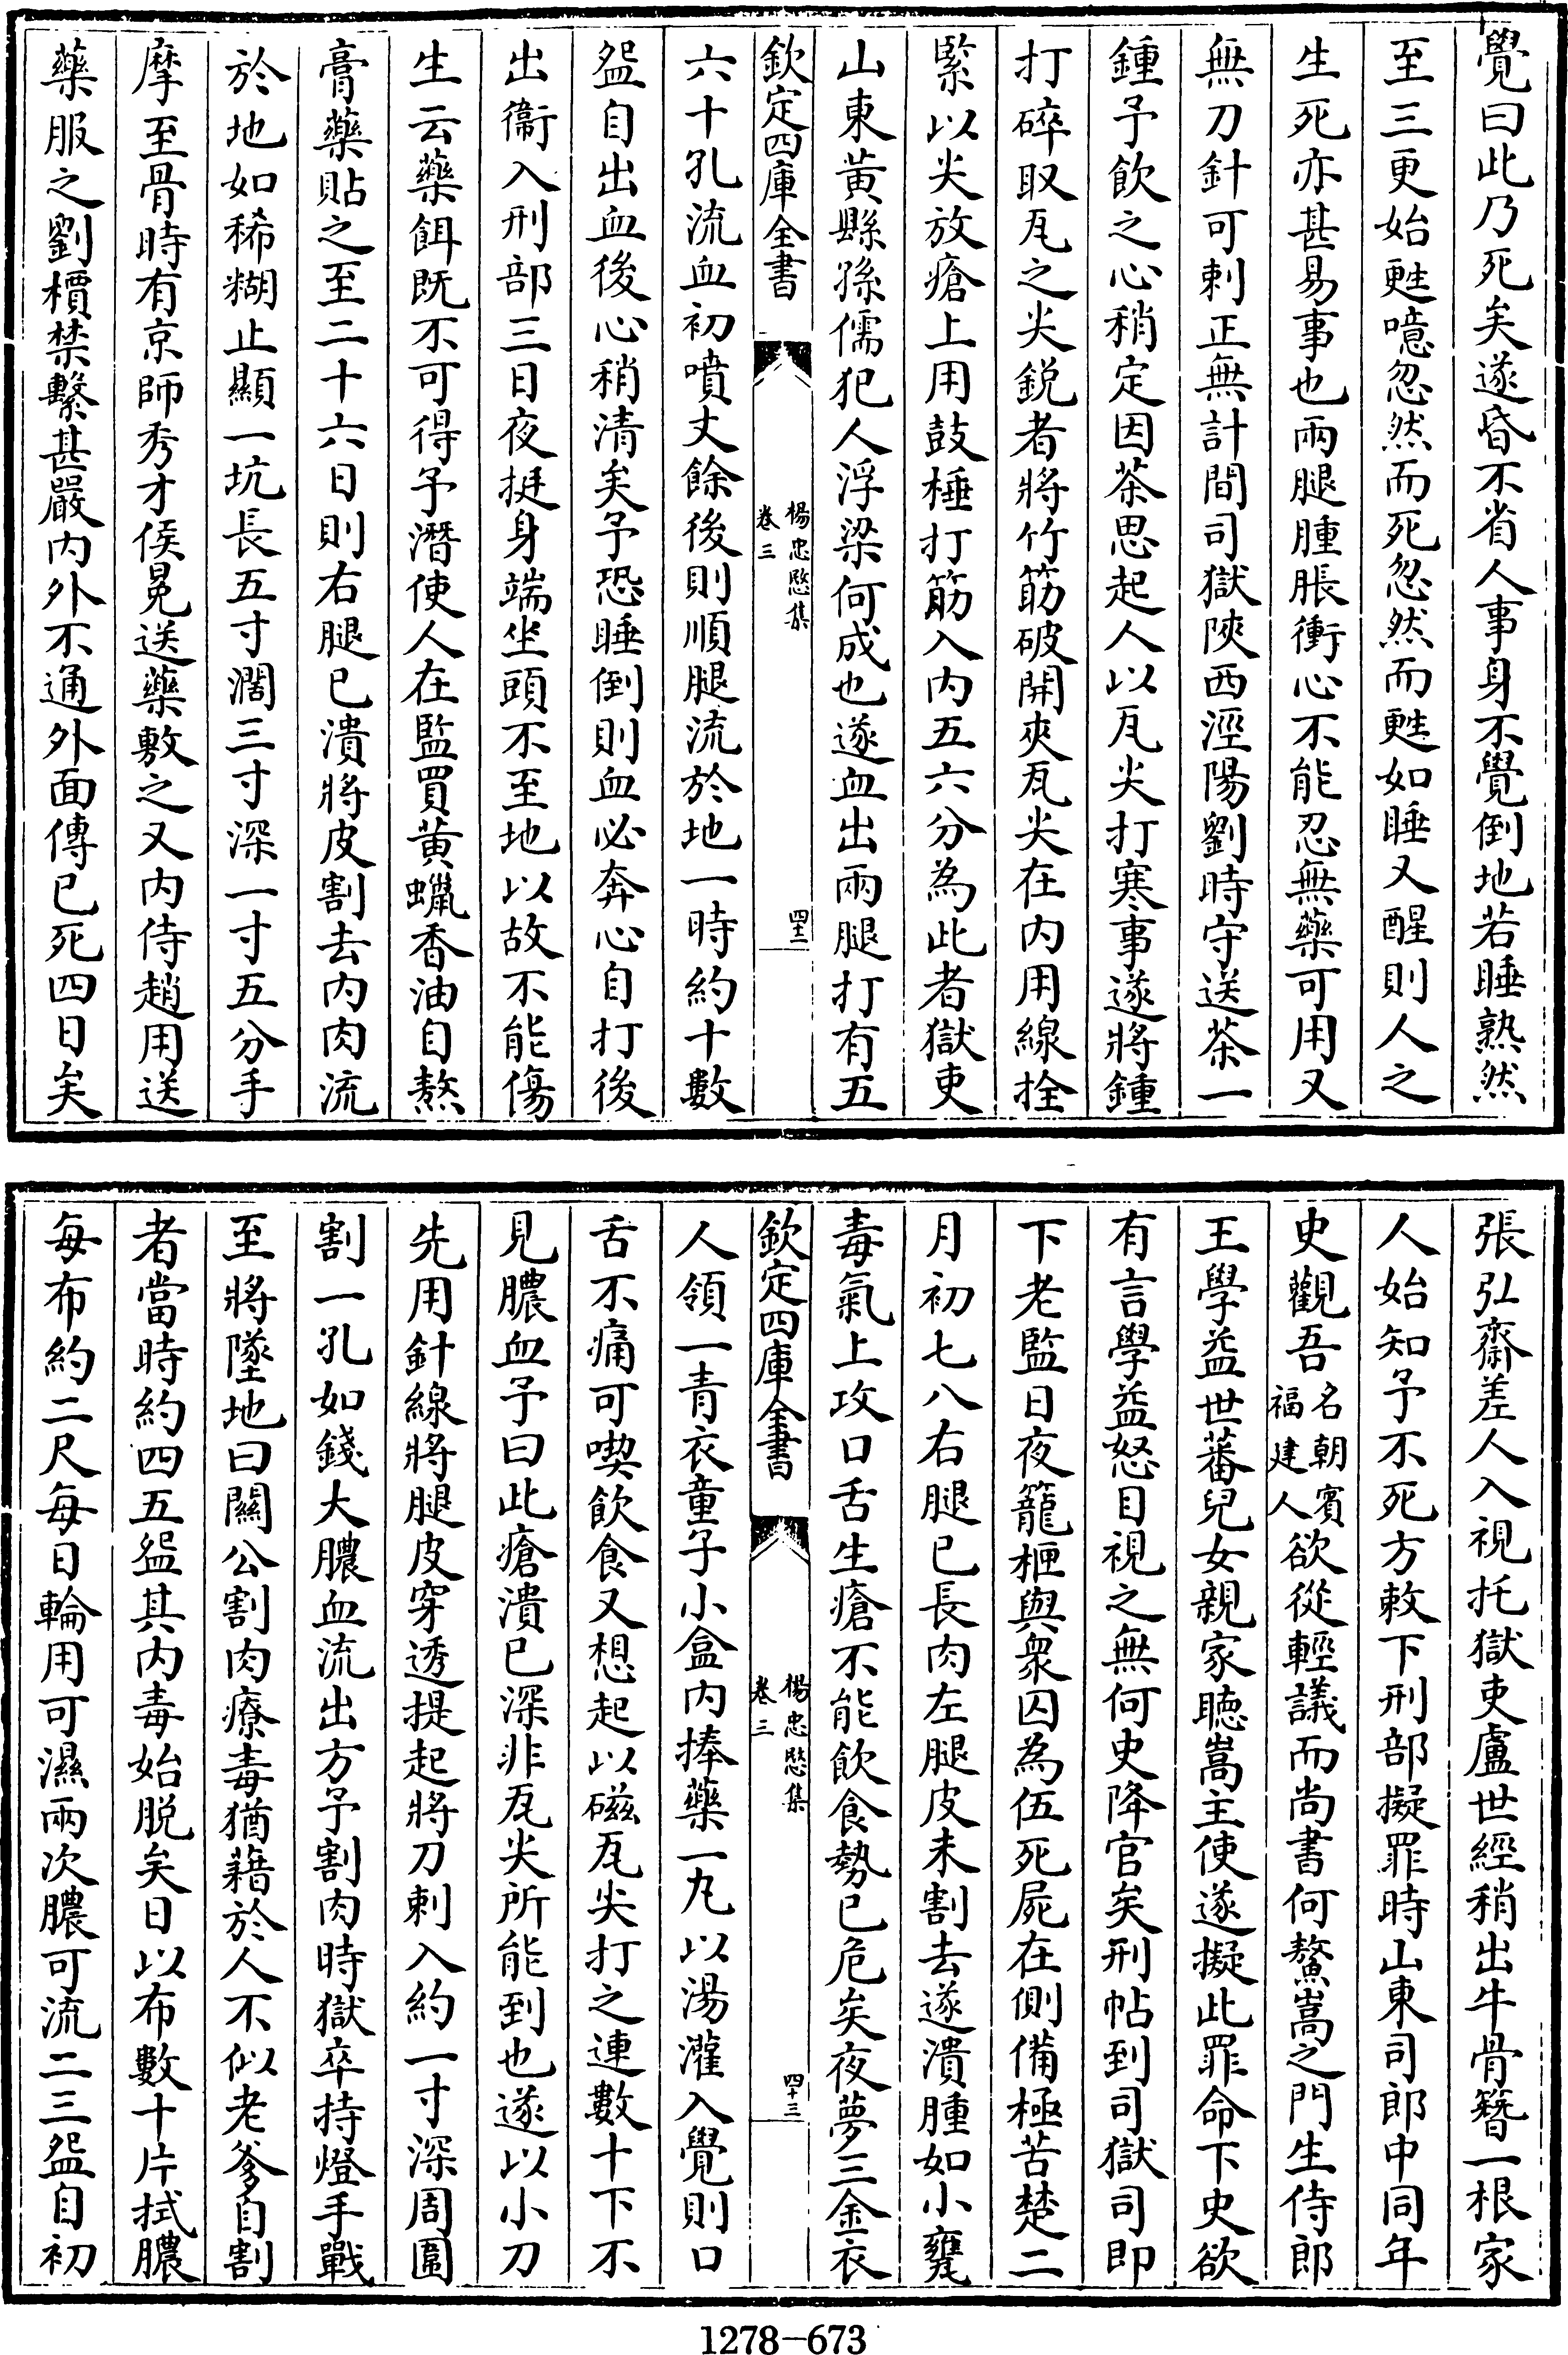 覺曰此乃死矣遂昏不省人事身不覺倒地若睡熟然
至三更始甦噫忽然而死忽然而甦如睡又醒則人之
生死亦甚易事也兩腿腫脹衝心不能忍無藥可用又
無刀針可刺正無計間司獄陜西涇陽劉時守送茶一
鍾予飲之心稍定因茶思起人以瓦尖打寒事遂將鍾
打碎取瓦之尖鋭者將竹筯破開夾瓦尖在内用線拴
緊以尖放瘡上用鼓棰打筯入内五六分為此者獄吏
山東黄縣孫儒犯人浮梁何成也遂血出兩腿打有五
欽定四庫全書
楊忠愍集
卷三
四十二
六十孔流血初噴丈餘後則順腿流於地一時約十數
盌自出血後心稍清矣予恐睡倒則血必奔心自打後
出衞入刑部三日夜挺身端坐頭不至地以故不能傷
生云藥餌既不可得予潛使人在監買黄蠟香油自熬
膏藥貼之至二十六日則右腿已潰將皮割去内肉流
於地如稀糊止顯一坑長五寸濶三寸深一寸五分手
摩至骨時有京師秀才侯冕送藥敷之又内侍趙用送
藥服之劉檟禁繫甚嚴内外不通外面傳已死四日矣
張弘齋差人入視托獄吏盧世經稍出牛骨簪一根家
人始知予不死方敕下刑部擬罪時山東司郎中同年
史觀吾名朝賓福建人欲從輕議而尚書何鰲嵩之門生侍郎
王學益世蕃兒女親家聽嵩主使遂擬此罪命下史欲
有言學益怒目視之無何史降官矣刑帖到司獄司即
下老監日夜籠柙與衆囚為伍死屍在側備極苦楚二
月初七八右腿已長肉左腿皮未割去遂潰腫如小甕
毒氣上攻口舌生瘡不能飲食勢已危矣夜夢三金衣
欽定四庫全書
楊忠愍集
卷三
四十三
人領一青衣童子小盒内捧藥一丸以湯灌入覺則口
舌不痛可喫飲食又想起以磁瓦尖打之連數十下不
見膿血予曰此瘡潰已深非瓦尖所能到也遂以小刀
先用針線將腿皮穿透提起將刀刺入約一寸深周圍
割一孔如錢大膿血流出方予割肉時獄卒持燈手戰
至將墜地曰關公割肉療毒猶藉於人不似老爹自割
者當時約四五盌其内毒始脱矣日以布數十片拭膿
每布約二尺每日輪用可濕兩次膿可流二三盌自初
1278-673